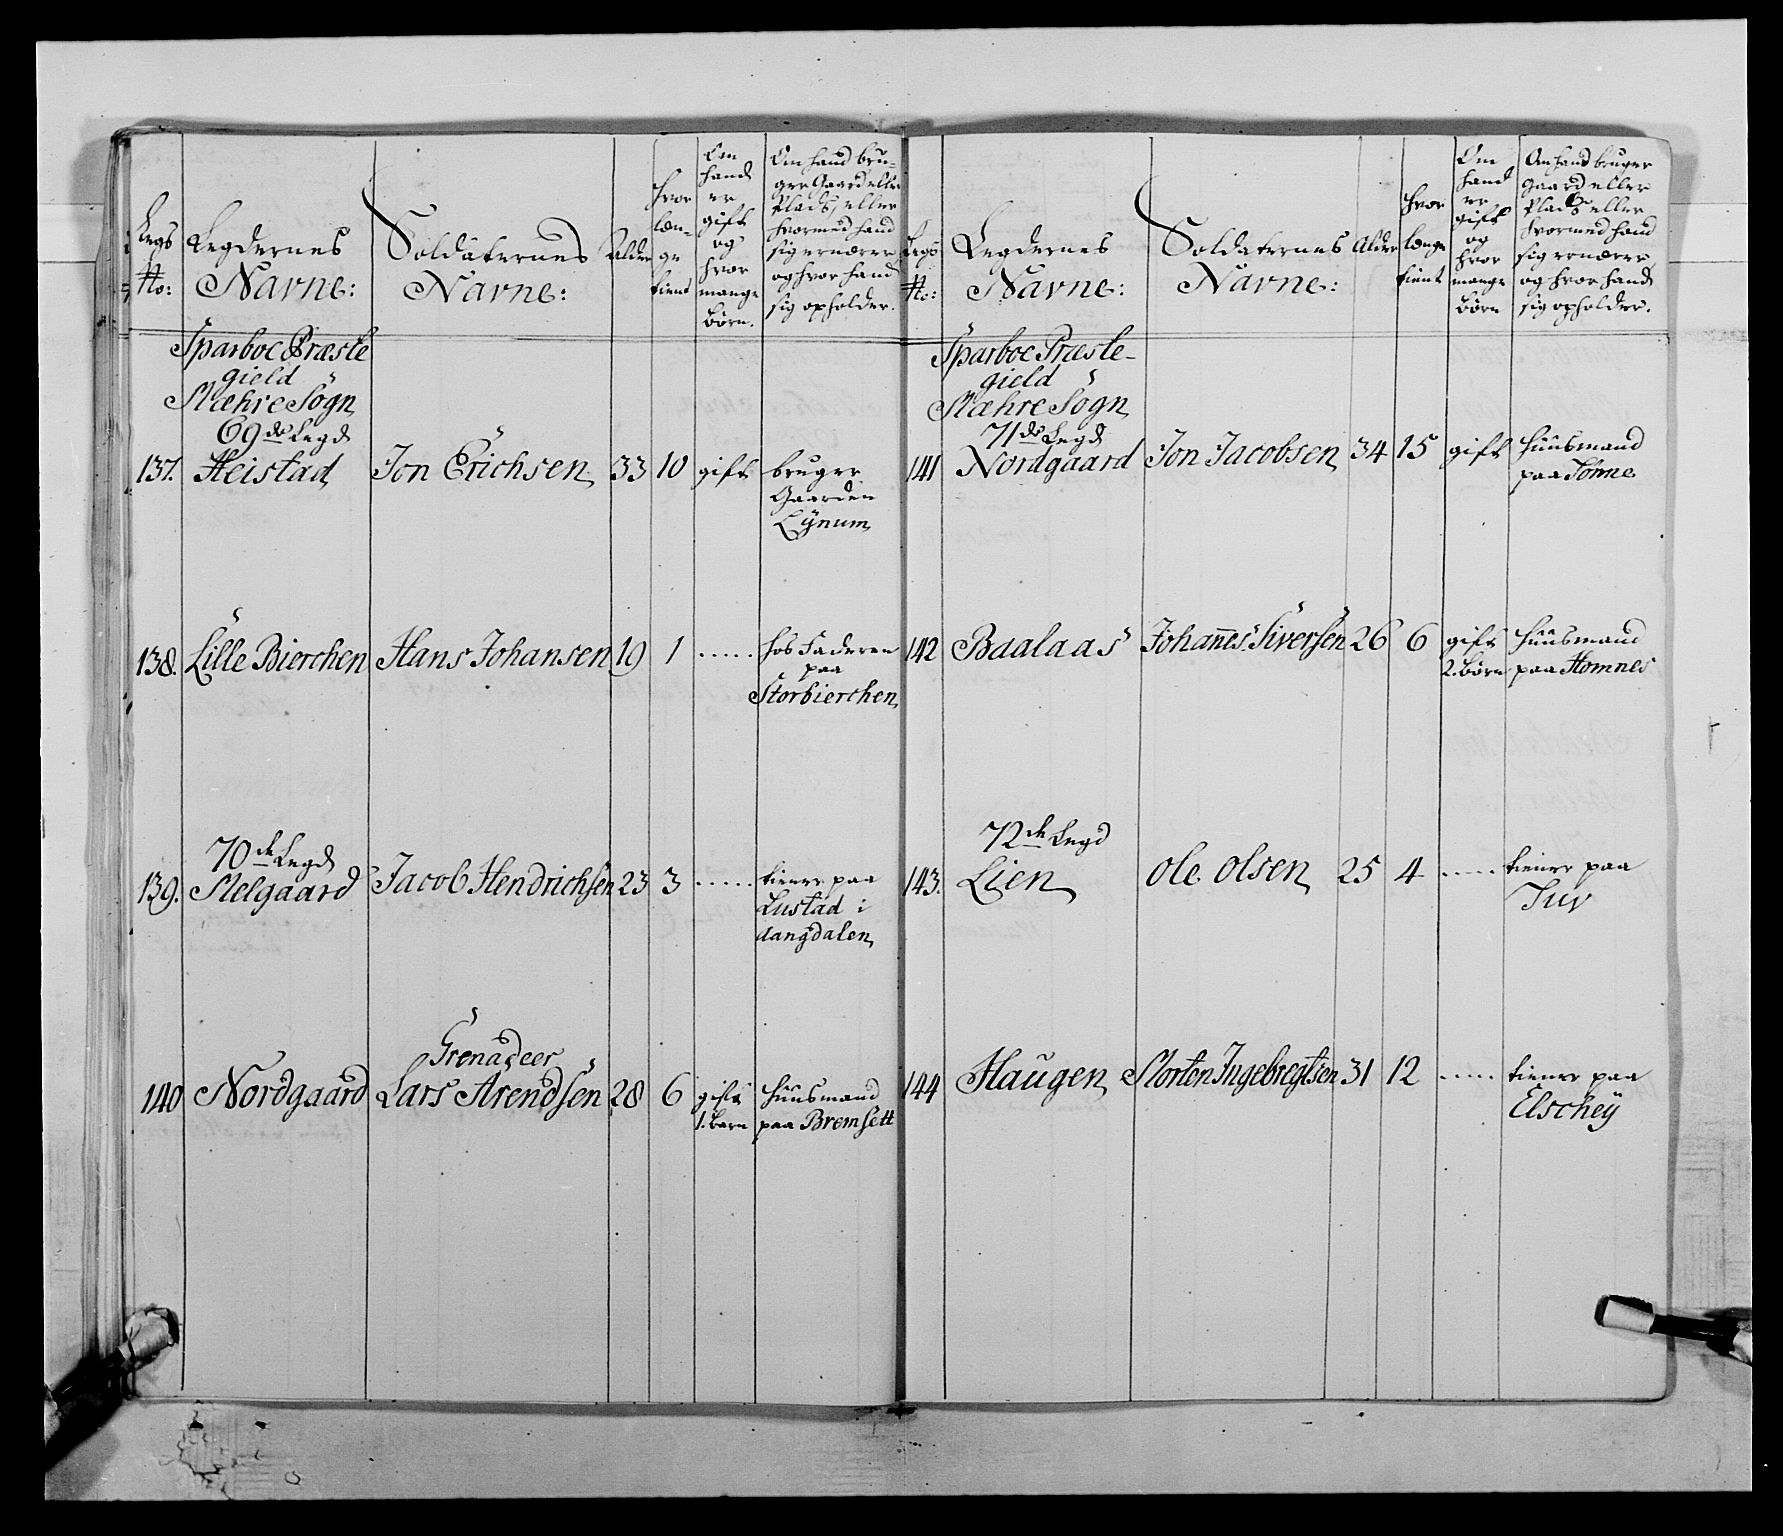 Legs
No:
Legdernes
Navne:
Soldaternes
Navne:
Alder
hvor
læn-
ge
tient
Om
hand
er
gift
og
hvor
mange
Børn.
Om hand bru-
ger Gaard eller
Plads, eller
hvormed hand
sig ernærer
og hvor hand
sig opholder.
Sparboe Præste
gield
Mæhre Sogn
69de Legd
137. Heistad Jon Erichsen 33 10 gift bruger
Gaarden
Lynum
138. Lille Bierchen Hans Johansen 19 1 ..... hos Faderen
paa
Storbierchen
70de Legd
139. Melgaard Jacob Hendrichsen 23 3 ..... tiener paa
Lustad i
Aangdalen
Grenadeer
140 Nordgaard Lars Arendsen 28 6 gift huusmand
1. barn paa Bremsett
Legs
No:
Legdernes
Navne:
Soldaternes
Navne:
Alder
hvor
længe
tient
Om
hand
er
gift
og
hvor
mange
Børn
Om hand bruger
Gaard eller
Plads eller
hvormed hand
sig ernærer
og hvor hand
sig opholder.
Sparboe Præste-
gield
Mæhre Sogn
71de Legd
141 Nordgaard Jon Jacobsen 34 15 gift huusmand
paa Tømne
142 Baalaas Johannes Siversen 26 6 gift huusmand
2. børn paa Homnes
72de Legd
143. Lien Ole Olsen 25 4 ..... tiener paa
Tuv
144 Haugen Morten Ingebregtsen 31 12 ..... tiener paa
Elschey